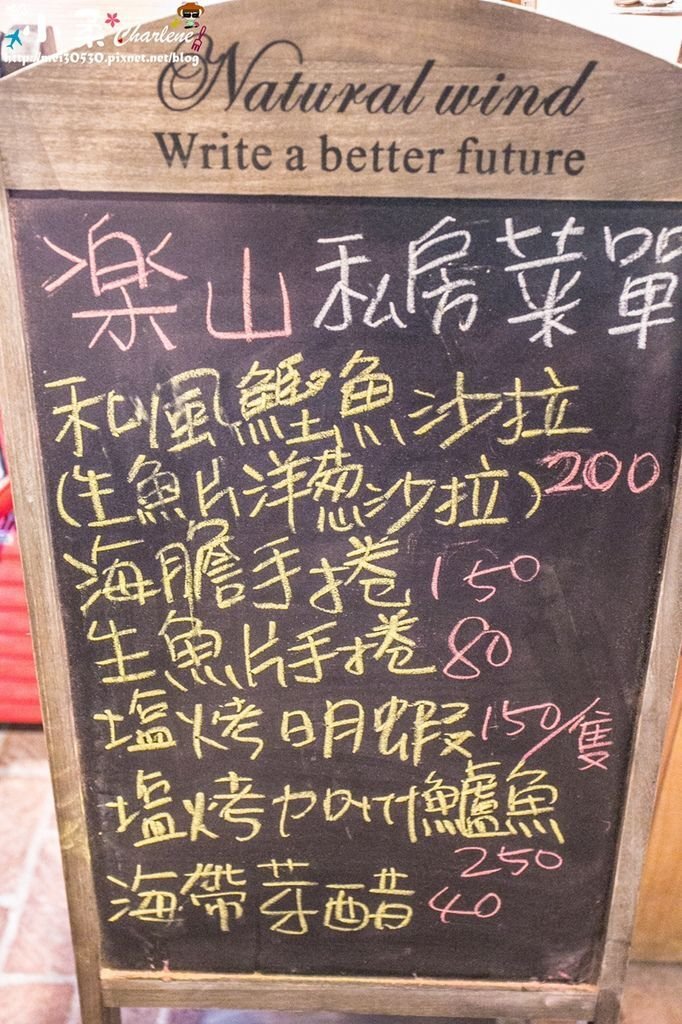 小菜 Charlene
http://mei30530.pixnet.net/blog
Natural wind
Write a better future
楽山 私房菜單
和風鰹魚沙拉
(生魚片洋葱沙拉) 200
海膽手捲 150
生魚片手捲 80
塩烤明蝦 150/隻
塩烤加州鱸魚
250
海帶芽醋 40